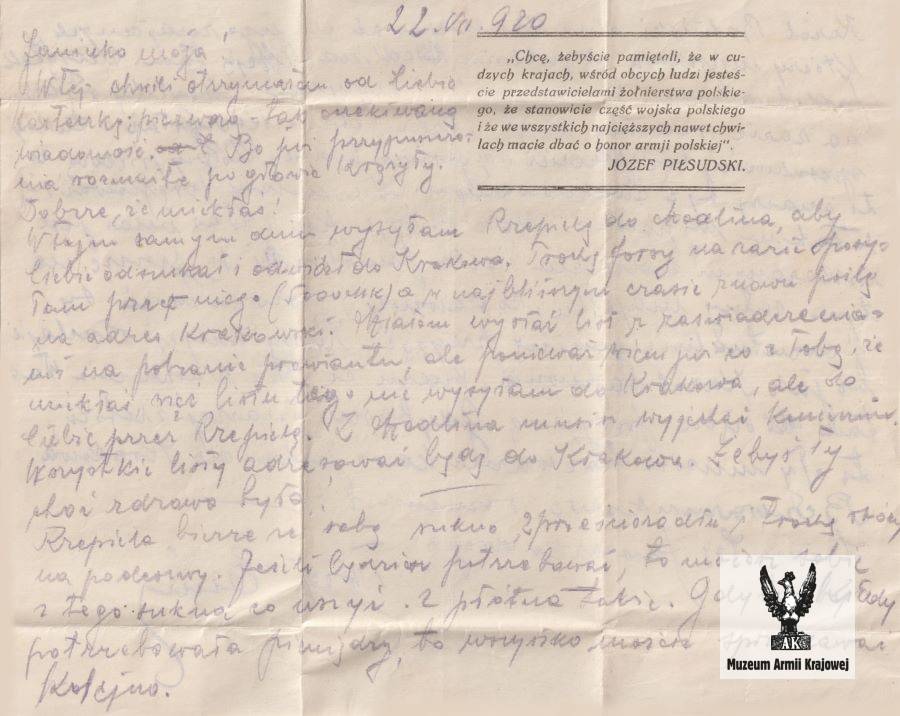 22.VII.920
„Chcę, żebyście pamiętali, że w cu-
dzych krajach, wśród obcych ludzi jesteś-
cie przedstawicielami żołnierstwa polskie-
go, że stanowicie część wojska polskiego
i że we wszystkich najcięższych nawet chwi-
lach macie dbać o honor armji polskiej".
JÓZEF PIŁSUDSKI.
moja,
W tej chwili otrzymałem od Ciebie
kartkę: pierwszą - tak oczekiwaną
wiadomość. Bo już przypuszcze-
nia rozmaite po głowie krążyły.
Dobrze, że uciekłaś!
W tym samym dniu wysyłam Rzepielę do Modlina, aby
Ciebie odszukał i odwiózł do Krakowa. Trochę forsy na razie
łam przez niego a w najbliższym czasie znowu poślę
na adres Krakowski. Miałem wysłać list z zaświadcze-
niem na pobranie prowiantu, ale ponieważ wiem już co z Tobą, że
uciekłaś, więc listu tego nie wysyłam do Krakowa, ale do
Ciebie przez Rzepielę. Z Modlina musisz wyjechać
Wszystkie listy adresować będę do Krakowa. Żebyś Ty
choć zdrowa była
Rzepiela bierze ze sobą sukno, 2 prześcieradła i trochę skóry
na podeszwy. Jeśli będziesz potrzebować, to możesz sobie
z tego sukna co uszyć. z płótna także. Gdy
potrzebowała pieniędzy, to wszystko możesz
Kolejno.
AK
Muzeum Armii Krajowej